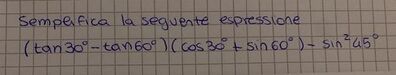 Sempeifica la seguente espressione
(tan30°-tan60°)(cos30°+sin60°)-sin²45°